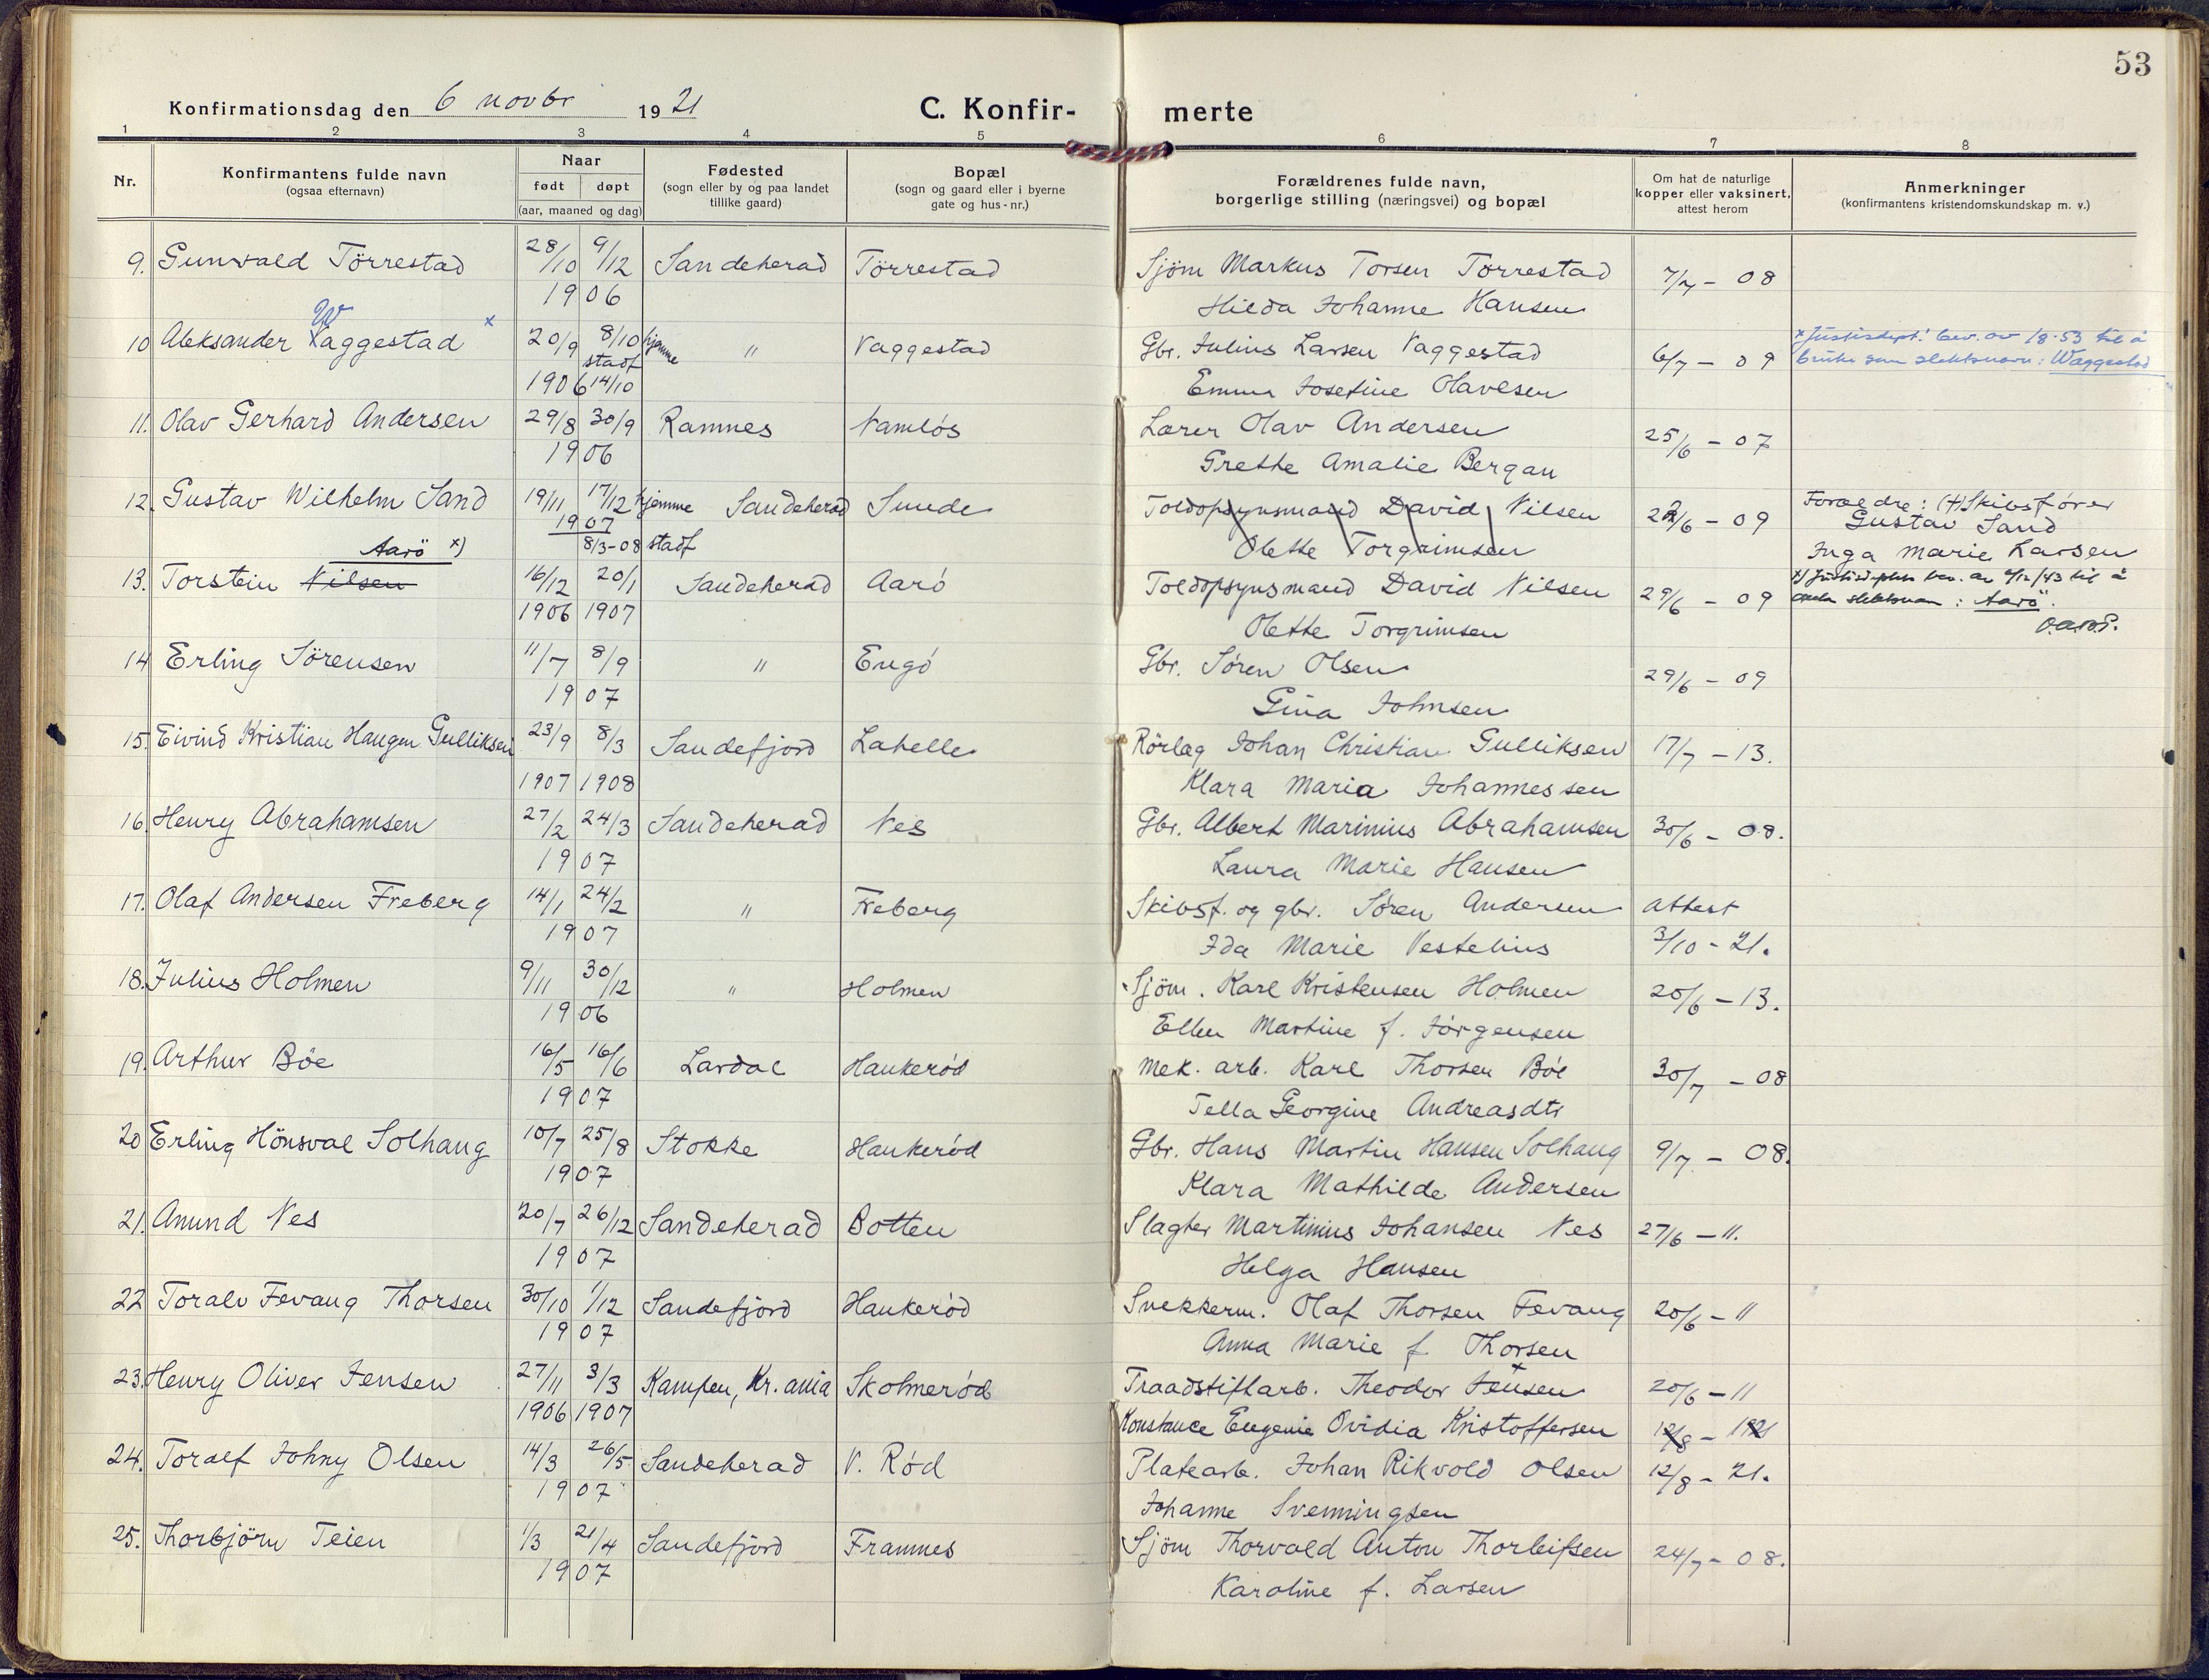 53
Konfirmationsdag den 6 novbr 1921 C. Konfir- merte
1 2 3 4 5 6 7 8
Nr. Konfirmantens fulde navn (ogsaa efternavn) Naar født døpt (aar, maaned og dag) Fødested (sogn eller by og paa landet tillike gaard) Bopæl (sogn og gaard eller i byerne gate og hus-nr.) Forældrenes fulde navn, borgerlige stilling (næringsvei) og bopæl Om hat de naturlige kopper eller vaksinert, attest herom Anmerkninger (konfirmantens kristendomskundskap m. v.)
9. Gunvald Törrestad 28/10 9/12 Sandeherad Törrestad Sjöm Markus Torsen Torrestad 7/7 - 08
1906 Hilda Johanne Hansen
W
10 Aleksander Vaggestad x 20/9 8/10 hjemme " Vaggestad Gbr. Julius Larsen Vaggestad 6/7 - 09 x Justisdept! bev. av 1/8-53 til å
stadf bruke som slektsnavn: Waggestad
1906 14/10 Emma Josefine Olavesen
11. Olav Gerhard Andersen 29/8 30/9 Ramnes Namløs Lærer Olav Andersen 25/6 - 07
1906 Grethe Amalie Bergan
12. Gustav Wilhelm Sand 19/11 17/12 hjemme Sandeherad Sunde Toldopsynsmand David Nilsen 29/6 - 09 Forældre: (+) Skibsfører
1907 Gustav Sand
8/3-08 stadf Olette Torgrimsen Inga Marie Larsen
Aarö x)
13. Torstein Nilsen 16/12 20/1 Sandeherad Aarö Toldopsynsmand David Nilsen 29/6 - 09 x) Justisdeptets bev. av 4/12/43 til å
slektsnavn: Aarö.
1906 1907 Olette Torgrimsen
14 Erling Sörensen 11/7 8/9 " Engö Gbr. Søren Olsen 29/6 - 09
1907 Gina Johnsen
15. Eivind Kristian Haugen Gulliksen 23/9 8/3 Sandefjord Lahelle Rörlæg Johan Christian Gulliksen 17/7 - 13.
1907 1908 Klara Maria Johannessen
16. Henry Abrahamsen 27/2 24/3 Sandeherad Nes Gbr. Albert Marinius Abrahamsen 30/6 - 08.
1907 Laura Marie Hansen
17. Olaf Andersen Freberg 14/1 24/2 " Freberg Skibsf. og gbr. Søren Andersen attest
1907 Ida Marie Vestelius 3/10 - 21.
18. Julius Holmen 9/11 30/12 " Holmen Sjöm. Karl Kristensen Holmen 20/6 - 13.
1906 Ellen Martine f. Jörgensen
19. Arthur Böe 16/5 16/6 Lardal Haukerød Mek. arb. Karl Thorsen Böe 30/7 - 08
1907 Tella Georgine Andreasdtr
20 Erling Hönsval Solhaug 10/7 25/8 Stokke Haukerød Gbr. Hans Martin Hansen Solhaug 9/7 - 08.
1907 Klara Mathilde Andersen
21. Anund Nes 20/7 26/12 Sandeherad Botten Slagter Martinius Johansen Nes 27/6 - 11.
1907 Helga Hansen
22 Toralv Fevang Thorsen 30/10 1/12 Sandefjord Haukerød Snekkerm. Olaf Thorsen Fevang 20/6 - 11
1907 Anna Marie f. Thorsen
23. Henry Oliver Jensen 27/11 3/3 Kampen, Kr.ania Skolmerød Traadstiftarb. Theodor Jensen 20/6 - 11
1906 1907 Konstance Eugenie Ovidia Kristoffersen 12/8 -
24. Toralf Johny Olsen 14/3 26/5 Sandeherad V. Rød Platearb. Johan Rikvold Olsen 12/8 - 21.
1907 Johanne Svenningsen
25. Thorbjörn Teien 1/3 21/4 Sandefjord Framnes Sjöm Thorvald Anton Thorleifsen 24/7 - 08.
1907 Karoline f. Larsen